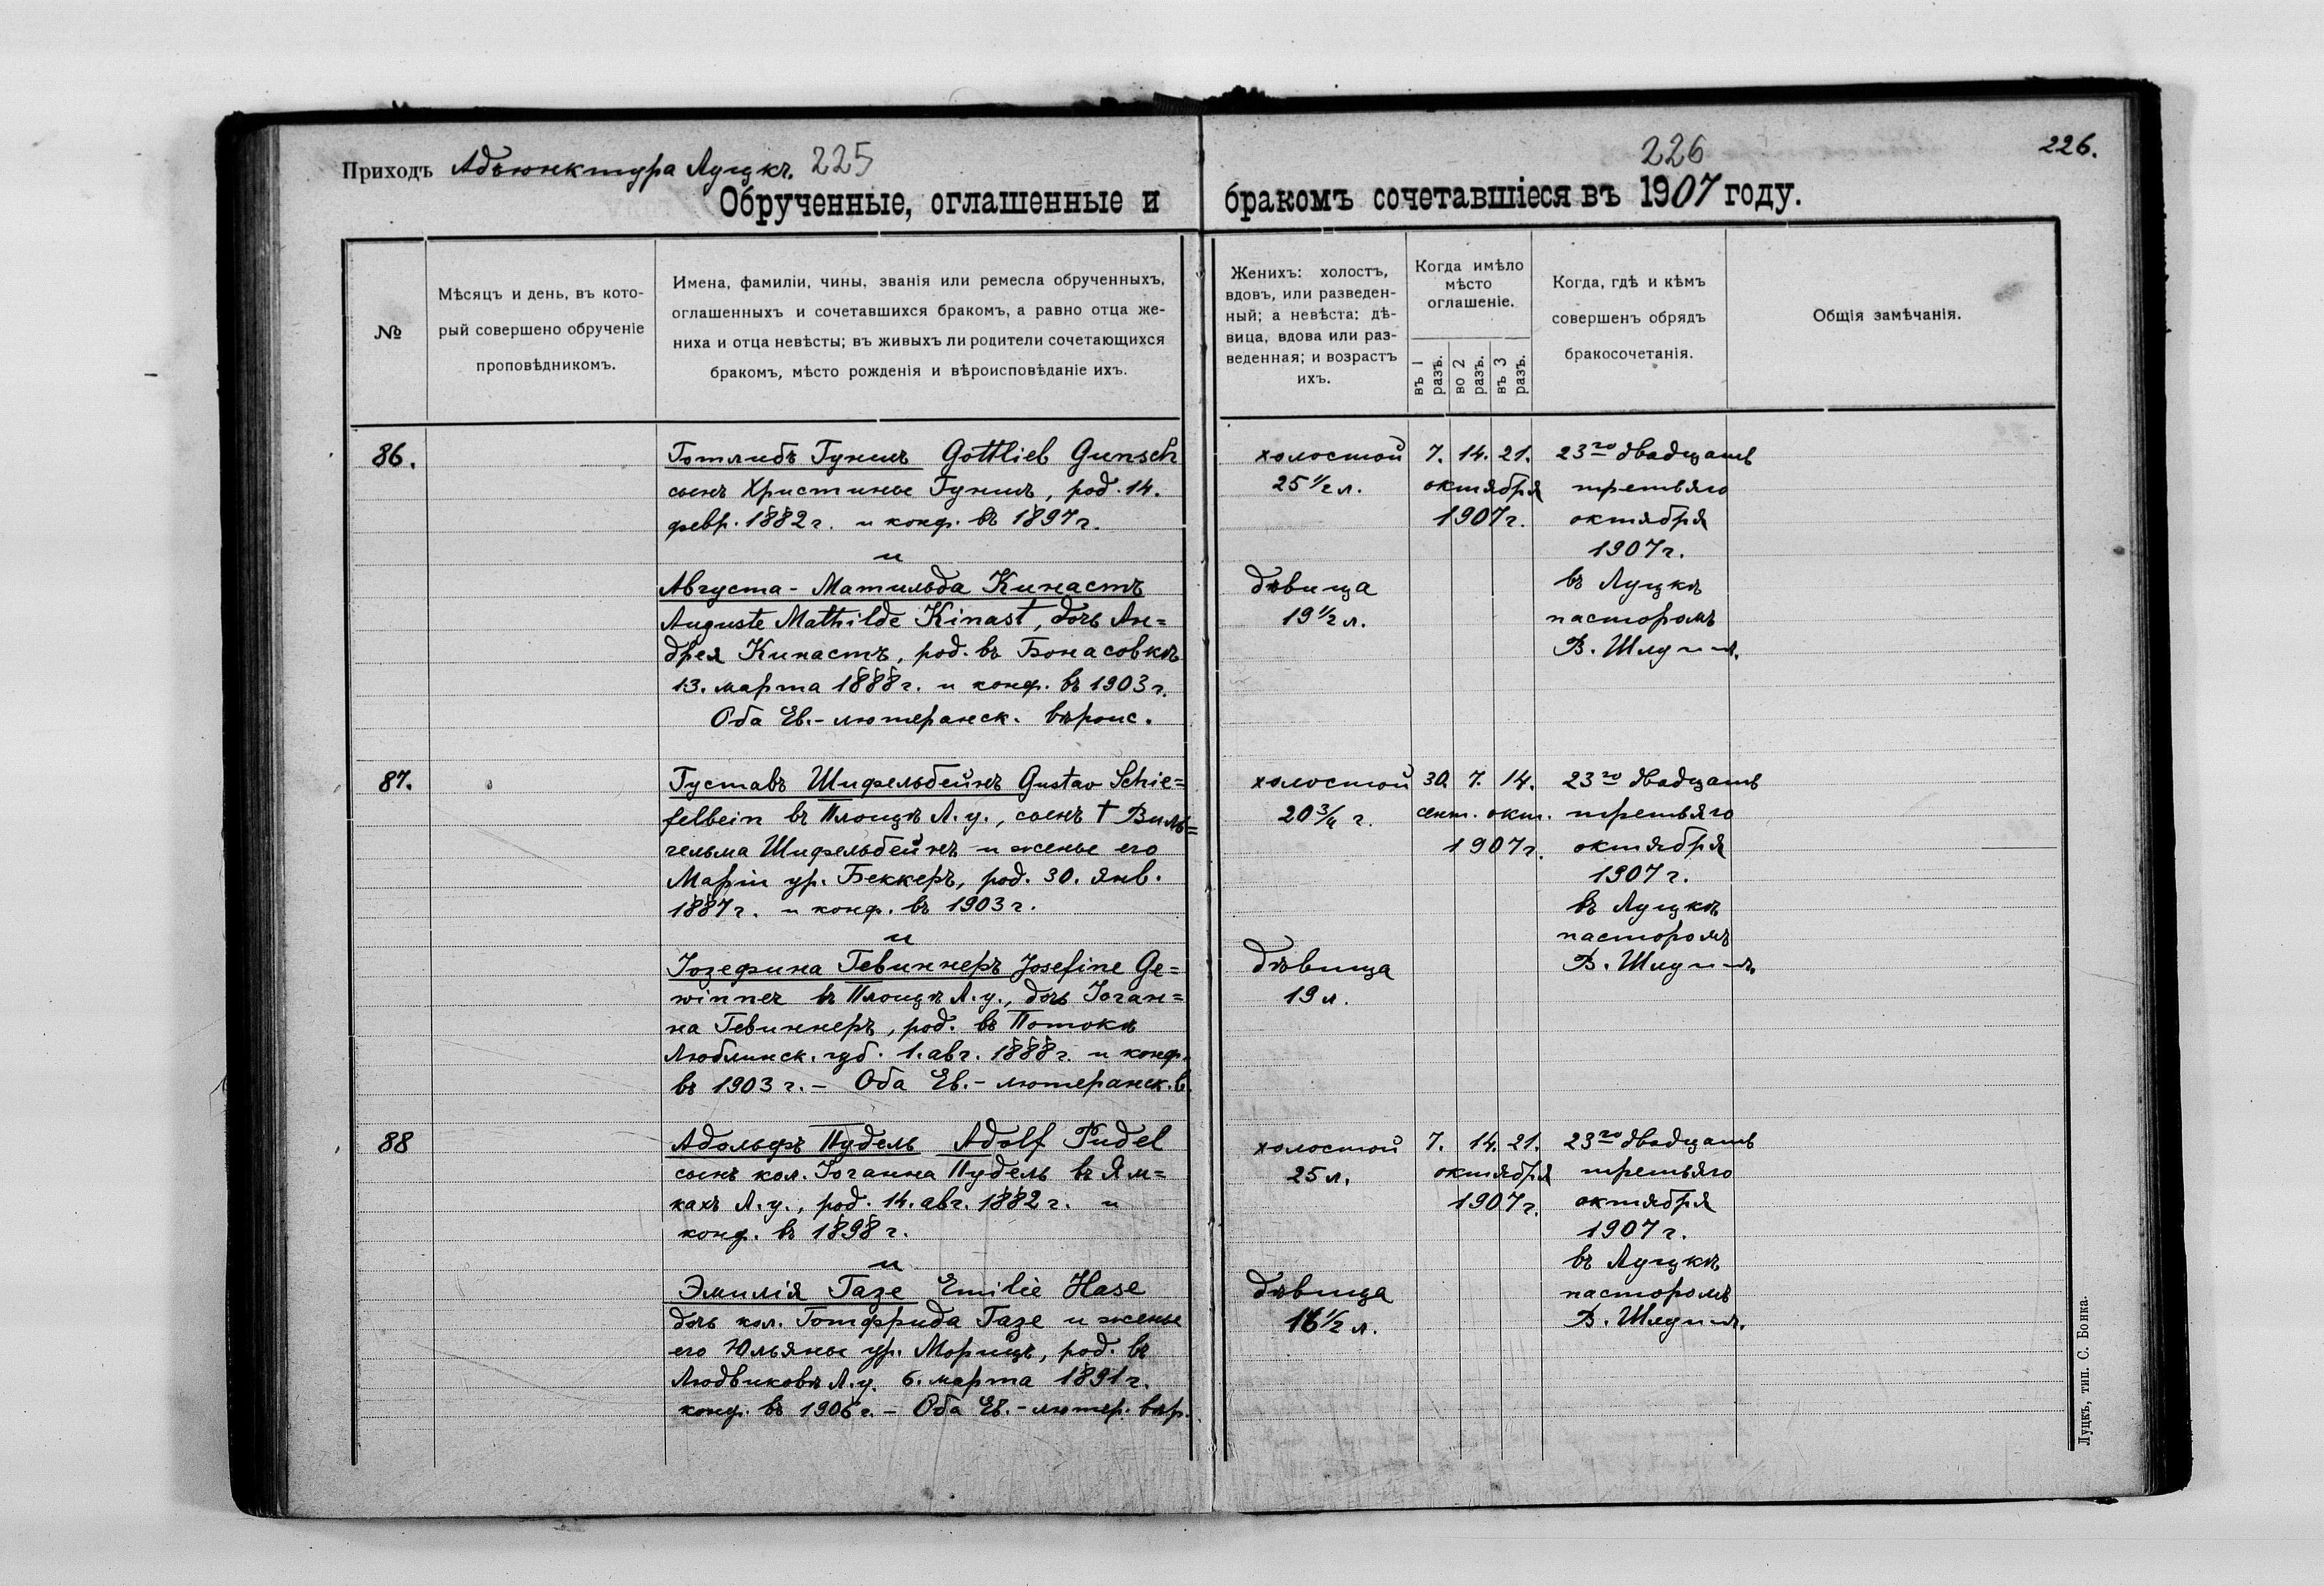 Приходъ Адъюнктура Луцкъ. 225
Обрученные, оглашенные и
№
Мѣсяцъ и день, въ кото-
рый совершено обрученіе
проповѣдникомъ.
Имена, фамиліи, чины, званія или ремесла обрученныхъ,
оглашенныхъ и сочетавшихся бракомъ, а равно отца же-
ниха и отца невѣсты; въ живыхъ ли родители сочетающихся
бракомъ, мѣсто рожденія и вѣроисповѣданіе ихъ.
86.
Готлибъ Гуншъ Gottlieb Gunsch
сынъ Христины Гуншъ, род. 14.
февр. 1882 г. и конф. въ 1897 г.
и
Августа-Матильда Кинастъ
Auguste Mathilde Kinast, дочь Ан=
дрея Кинастъ, род. въ Бонасовкѣ
13. марта 1888 г. и конф. въ 1903 г.
Оба Ев.-лютеранск. вѣроис.
87.
Густавъ Шифельбейнъ Gustav Schie=
felbein въ Площѣ Л. у., сынъ † Виль=
гельма Шифельбейнъ и жены его
Маріи ур. Беккеръ, род. 30. янв.
1887 г. и конф. въ 1903 г.
и
Іозефина Гевиннеръ Josefine Ge=
winner въ Площѣ Л. у., дочь Іоган=
на Гевиннеръ, род. въ Потокѣ
Люблинск. губ. 1. авг. 1888 г. и конф.
въ 1903 г. – Оба Ев.-лютеранск. в.
88
Адольфъ Пудель Adolf Pudel
сынъ кол. Іоганна Пудель въ Ям=
кахъ Л. у., род. 14. авг. 1882 г. и
конф. въ 1898 г.
и
Эмилія Газе Emilie Hase
дочь кол. Готфрида Газе и жены
его Юльяны ур. Морицъ, род. въ
Людвиковѣ Л. у. 6. марта 1891 г.
конф. въ 1906 г. – Оба Ев.-лютер. вѣр.
226
226.
бракомъ сочетавшіеся въ 1907 году.
Женихъ: холостъ,
вдовъ, или разведен-
ный; а невѣста: дѣ-
вица, вдова или раз-
веденная; и возрастъ
ихъ.
Когда имѣло
мѣсто
оглашеніе.
въ 1 разъ.
во 2 разъ.
въ 3 разъ.
Когда, гдѣ и кѣмъ
совершенъ обрядъ
бракосочетанія.
Общія замѣчанія.
холостой 7. 14. 21. 23го двадцать
25 1/2 л. октября третьяго
1907 г. октября
1907 г.
дѣвица въ Луцкѣ
19 1/2 л. пасторомъ
холостой 30. 7. 14. 23го двадцать
20 3/4 г. сент. окт. третьяго
1907 г. октября
1907 г.
въ Луцкѣ
пасторомъ
дѣвица
19 л.
холостой 7. 14. 21. 23го двадцать
25 л. октября третьяго
1907 г. октября
1907 г.
въ Луцкѣ
дѣвица пасторомъ
16 1/2 л.
Луцкъ, тип. С. Бонка.